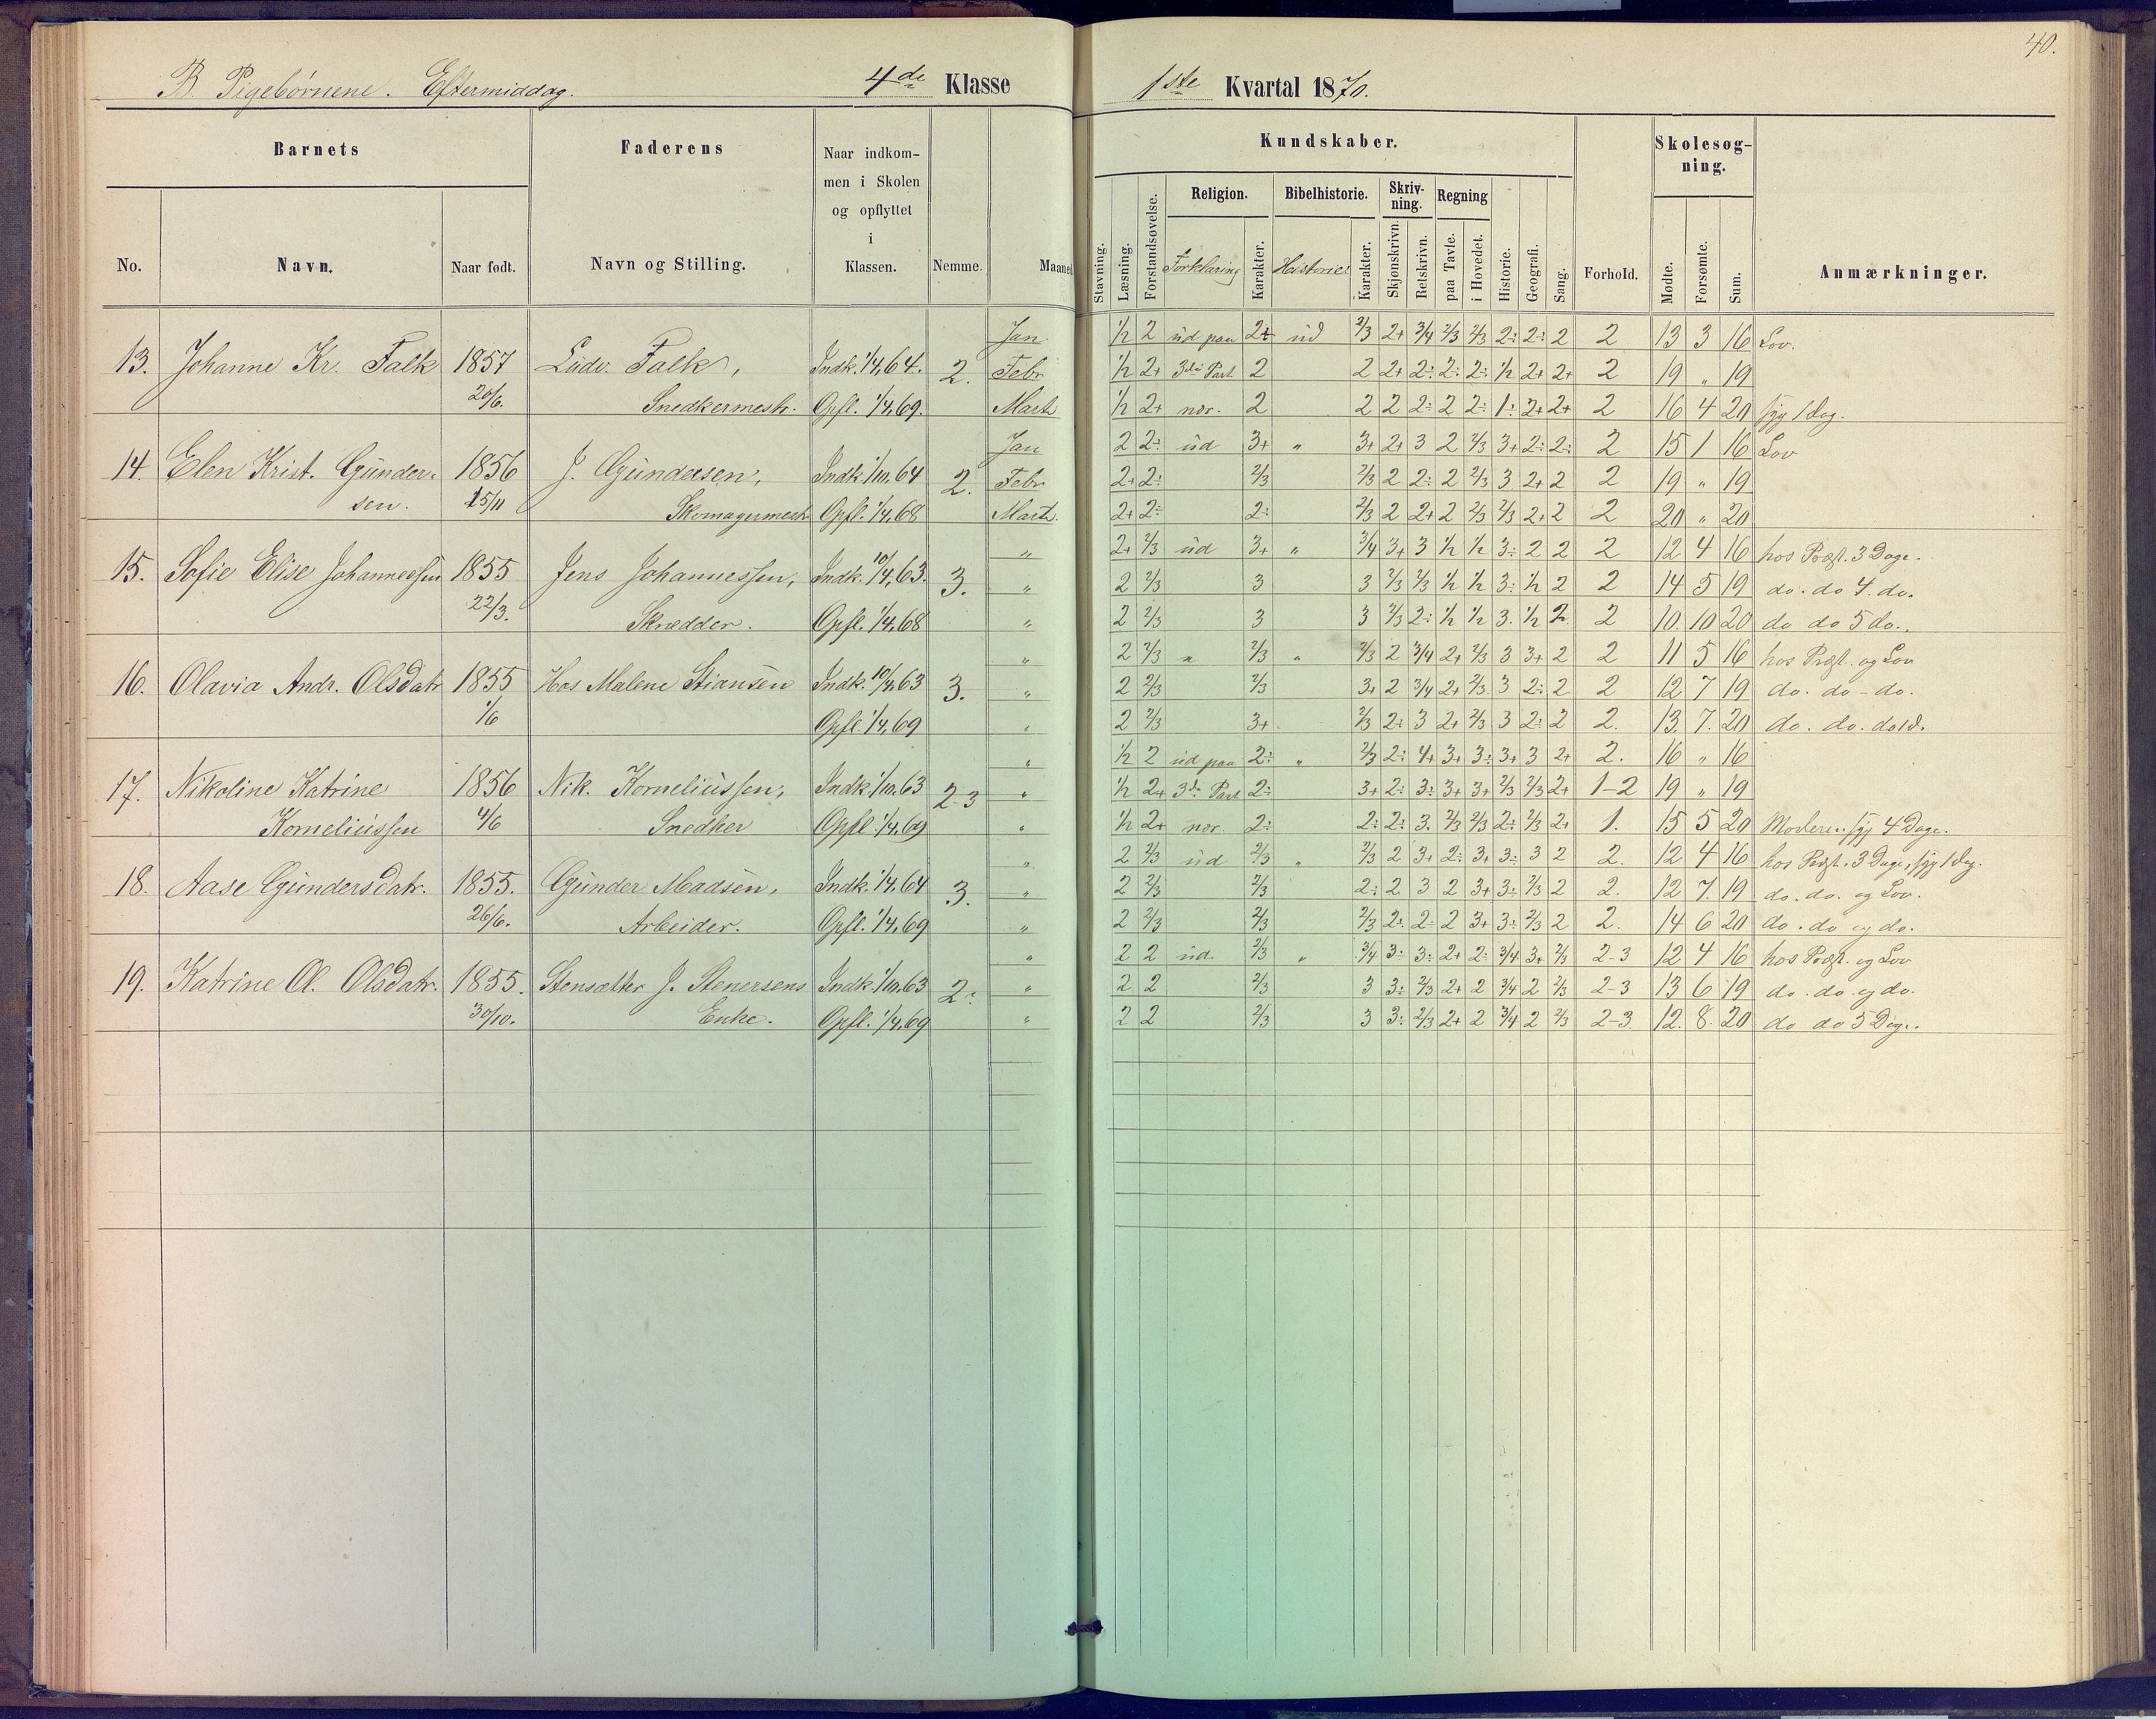 40.
B. Pigebørnene. Eftermiddag. 4de Klasse
1ste Kvartal 1870.
Barnets Faderens Naar indkom-
men i Skolen
og opflyttet
i
Klassen.
No. Navn. Naar født. Navn og Stilling. Nemme. Maaned
Kundskaber. Skolesøg-
ning.
Religion. Bibelhistorie. Skriv-
ning. Regning
Stavning. Læsning. Forstandsøvelse. Forklaring Karakter. Historier Karakter. Skjønskrivn. Retskrivn. paa Tavle. i Hovedet. Historie. Geografi. Sang. Forhold. Mødte. Forsømte. Sum. Anmærkninger.
Jan 1/2 2 ud paa 2+ ud 2/3 2+ 3/4 2/3 2/3 2÷ 2÷ 2 2 13 3 16 Lov.
13. Johanne Kr. Falk 1857 Ludv. Falk, Indk. 1/4 64. 2. Febr 1/2 2+ 3die Part 2 2 2+ 2÷ 2÷ 2÷ 1/2 2+ 2+ 2 19 " 19
20/6. Snedkermestr. Opfl. 1/4 69. Marts 1/2 2+ nor. 2 2 2 2÷ 2 2÷ 1÷ 2+ 2+ 2 16 4 20 syg 1 Dag.
Jan 2 2÷ ud 3+ " 3+ 2+ 3 2 2/3 3+ 2÷ 2÷ 2 15 1 16 Lov
14. Elen Krist. Gunder- 1856 J. Gundersen, Indk. 1/10 64 2. Febr 2+ 2÷ 2/3 2/3 2 2÷ 2 2/3 3 2+ 2 2 19 " 19
sen. 15/11 Skomagermestr Opfl. 1/4 68 Marts. 2+ 2÷ 2÷ 2/3 2 2+ 2 2/3 2/3 2+ 2 2 20 " 20
" 2+ 2/3 ud 3+ " 3/4 3+ 3 1/2 1/2 3÷ 2 2 2 12 4 16 hos Præst. 3 Dage.
15. Sofie Elise Johannessen 1855 Jens Johannessen, Indk. 10/4 63. 3. " 2 2/3 3 3 2/3 2/3 1/2 1/2 3÷ 1/2 2 2 14 5 19 do. do 4. do.
22/3. Skredder. Opfl. 1/4 68 " 2 2/3 3 3 2/3 2÷ 1/2 1/2 3. 1/2 2 2 10. 10 20 do do 5 do.
" 2 2/3 " 2/3 " 2/3 2 3/4 2+ 2/3 3 3+ 2 2 11 5 16 hos Præst. og Lov
16. Olavia Andr. Olsdatr 1855 Hos Malene Stiansen Indk. 10/4 63 3. " 2 2/3 2/3 3+ 2 3/4 2+ 2/3 3 2÷ 2 2 12 7 19 do. do - do.
1/6 Opfl. 1/4 69 " 2 2/3 3+ 2/3 2÷ 3 2+ 2/3 3 2÷ 2 2. 13. 7. 20 do. do. do 1 d.
" 1/2 2 ud paa 2÷ " 2/3 2÷ 4+ 3+ 3÷ 3+ 3 2+ 2. 16 " 16
17. Nikoline Katrine 1856 Nik. Korneliussen, Indk. 1/10 63 2-3 " 1/2 2+ 3die Part 2÷ 3+ 2÷ 3÷ 3+ 3+ 2/3 2/3 2+ 1-2 19 " 19
Korneliussen 4/6 Snedker Opfl. 1/4 69 " 1/2 2+ nor. 2÷ 2÷ 2÷ 3. 2/3 2/3 2÷ 2/3 2+ 1. 15 5 20 Moderen syg 4 Dage.
" 2 2/3 ud 2/3 " 2/3 2 3+ 2÷ 3+ 3÷ 3 2 2. 12 4 16 hos Præst. 3 Dage, syg 1 Dag.
18. Aase Gundersdatr. 1855. Gunder Madsen, Indk. 1/4 64 3. " 2 2/3 2/3 2÷ 2 3 2 3+ 3÷ 2/3 2 2. 12 7. 19 do. do. og Lov.
26/6. Arbeider. Opfl. 1/4 69 " 2 2/3 2/3 2/3 2÷ 2÷ 2 3+ 3÷ 2/3 2 2. 14 6 20 do. do og do.
" 2 2 ud. 2/3 " 3/4 3÷ 3÷ 2+ 2÷ 3/4 3+ 2/3 2-3 12 4 16 hos Præst. og Lov
19. Katrine Ol. Olsdatr. 1855. Stensætter J. Stenersens Indk. 1/10 63 2÷ " 2 2 2/3 3 3÷ 2/3 2+ 2 3/4 2 2/3 2-3 13 6 19 do. do. og do.
30/10. Enke. Opfl. 1/4 69 " 2 2 2/3 3 3÷ 2/3 2+ 2 3/4 2 2/3 2-3 12. 8. 20 do do 5 Dag.